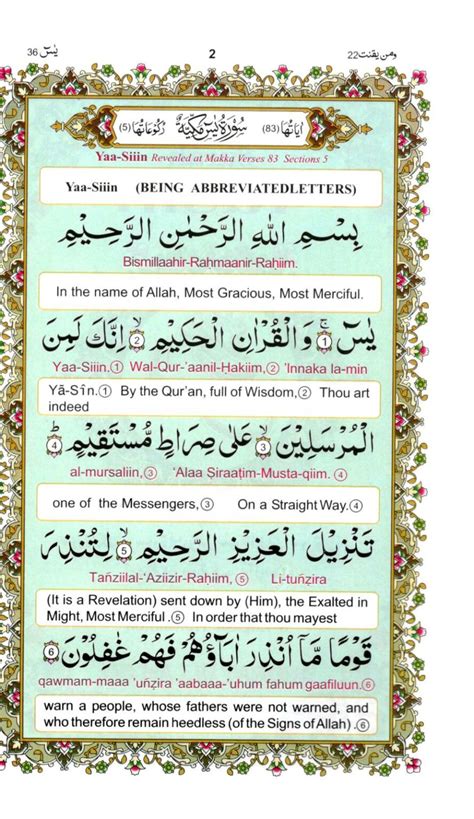 يٰسٓ 36 2 ومن يقنت 22
اٰيَاتُهَا (83) سُوْرَةُ يٰسٓ مَكِّيَّةٌ رُكُوْعَاتُهَا (5)
Yaa-Siiin Revealed at Makka Verses 83 Sections 5
Yaa-Siiin (BEING ABBREVIATEDLETTERS)
بِسْمِ اللهِ الرَّحْمٰنِ الرَّحِيْمِ
Bismillaahir-Raḥmaanir-Raḥiim.
In the name of Allah, Most Gracious, Most Merciful.
يٰسٓ ۚ ① وَالْقُرْاٰنِ الْحَكِيْمِ ۙ ② اِنَّكَ لَمِنَ
Yaa-Siiin.① Wal-Qur-'aanil-Ḥakiim,② 'Innaka la-min
Yā-Sîn.① By the Qur'an, full of Wisdom,② Thou art
indeed
الْمُرْسَلِيْنَ ۙ ③ عَلٰى صِرَاطٍ مُّسْتَقِيْمٍ ؕ ④
al-mursaliin,③ ‘Alaa Ṣiraaṭim-Musta-qiim. ④
one of the Messengers,③ On a Straight Way.④
تَنْزِيْلَ الْعَزِيْزِ الرَّحِيْمِ ۙ ⑤ لِتُنْذِرَ
Tañziilal-‘Aziizir-Raḥiim, ⑤ Li-tuñẓira
(It is a Revelation) sent down by (Him), the Exalted in
Might, Most Merciful .⑤ In order that thou mayest
قَوْمًا مَّاۤ اُنْذِرَ اٰبَآؤُهُمْ فَهُمْ غٰفِلُوْنَ ⑥
qawmam-maaa 'uñẓira 'aabaaa-'uhum fahum gaafiluun.⑥
warn a people, whose fathers were not warned, and
who therefore remain heedless (of the Signs of Allah) .⑥